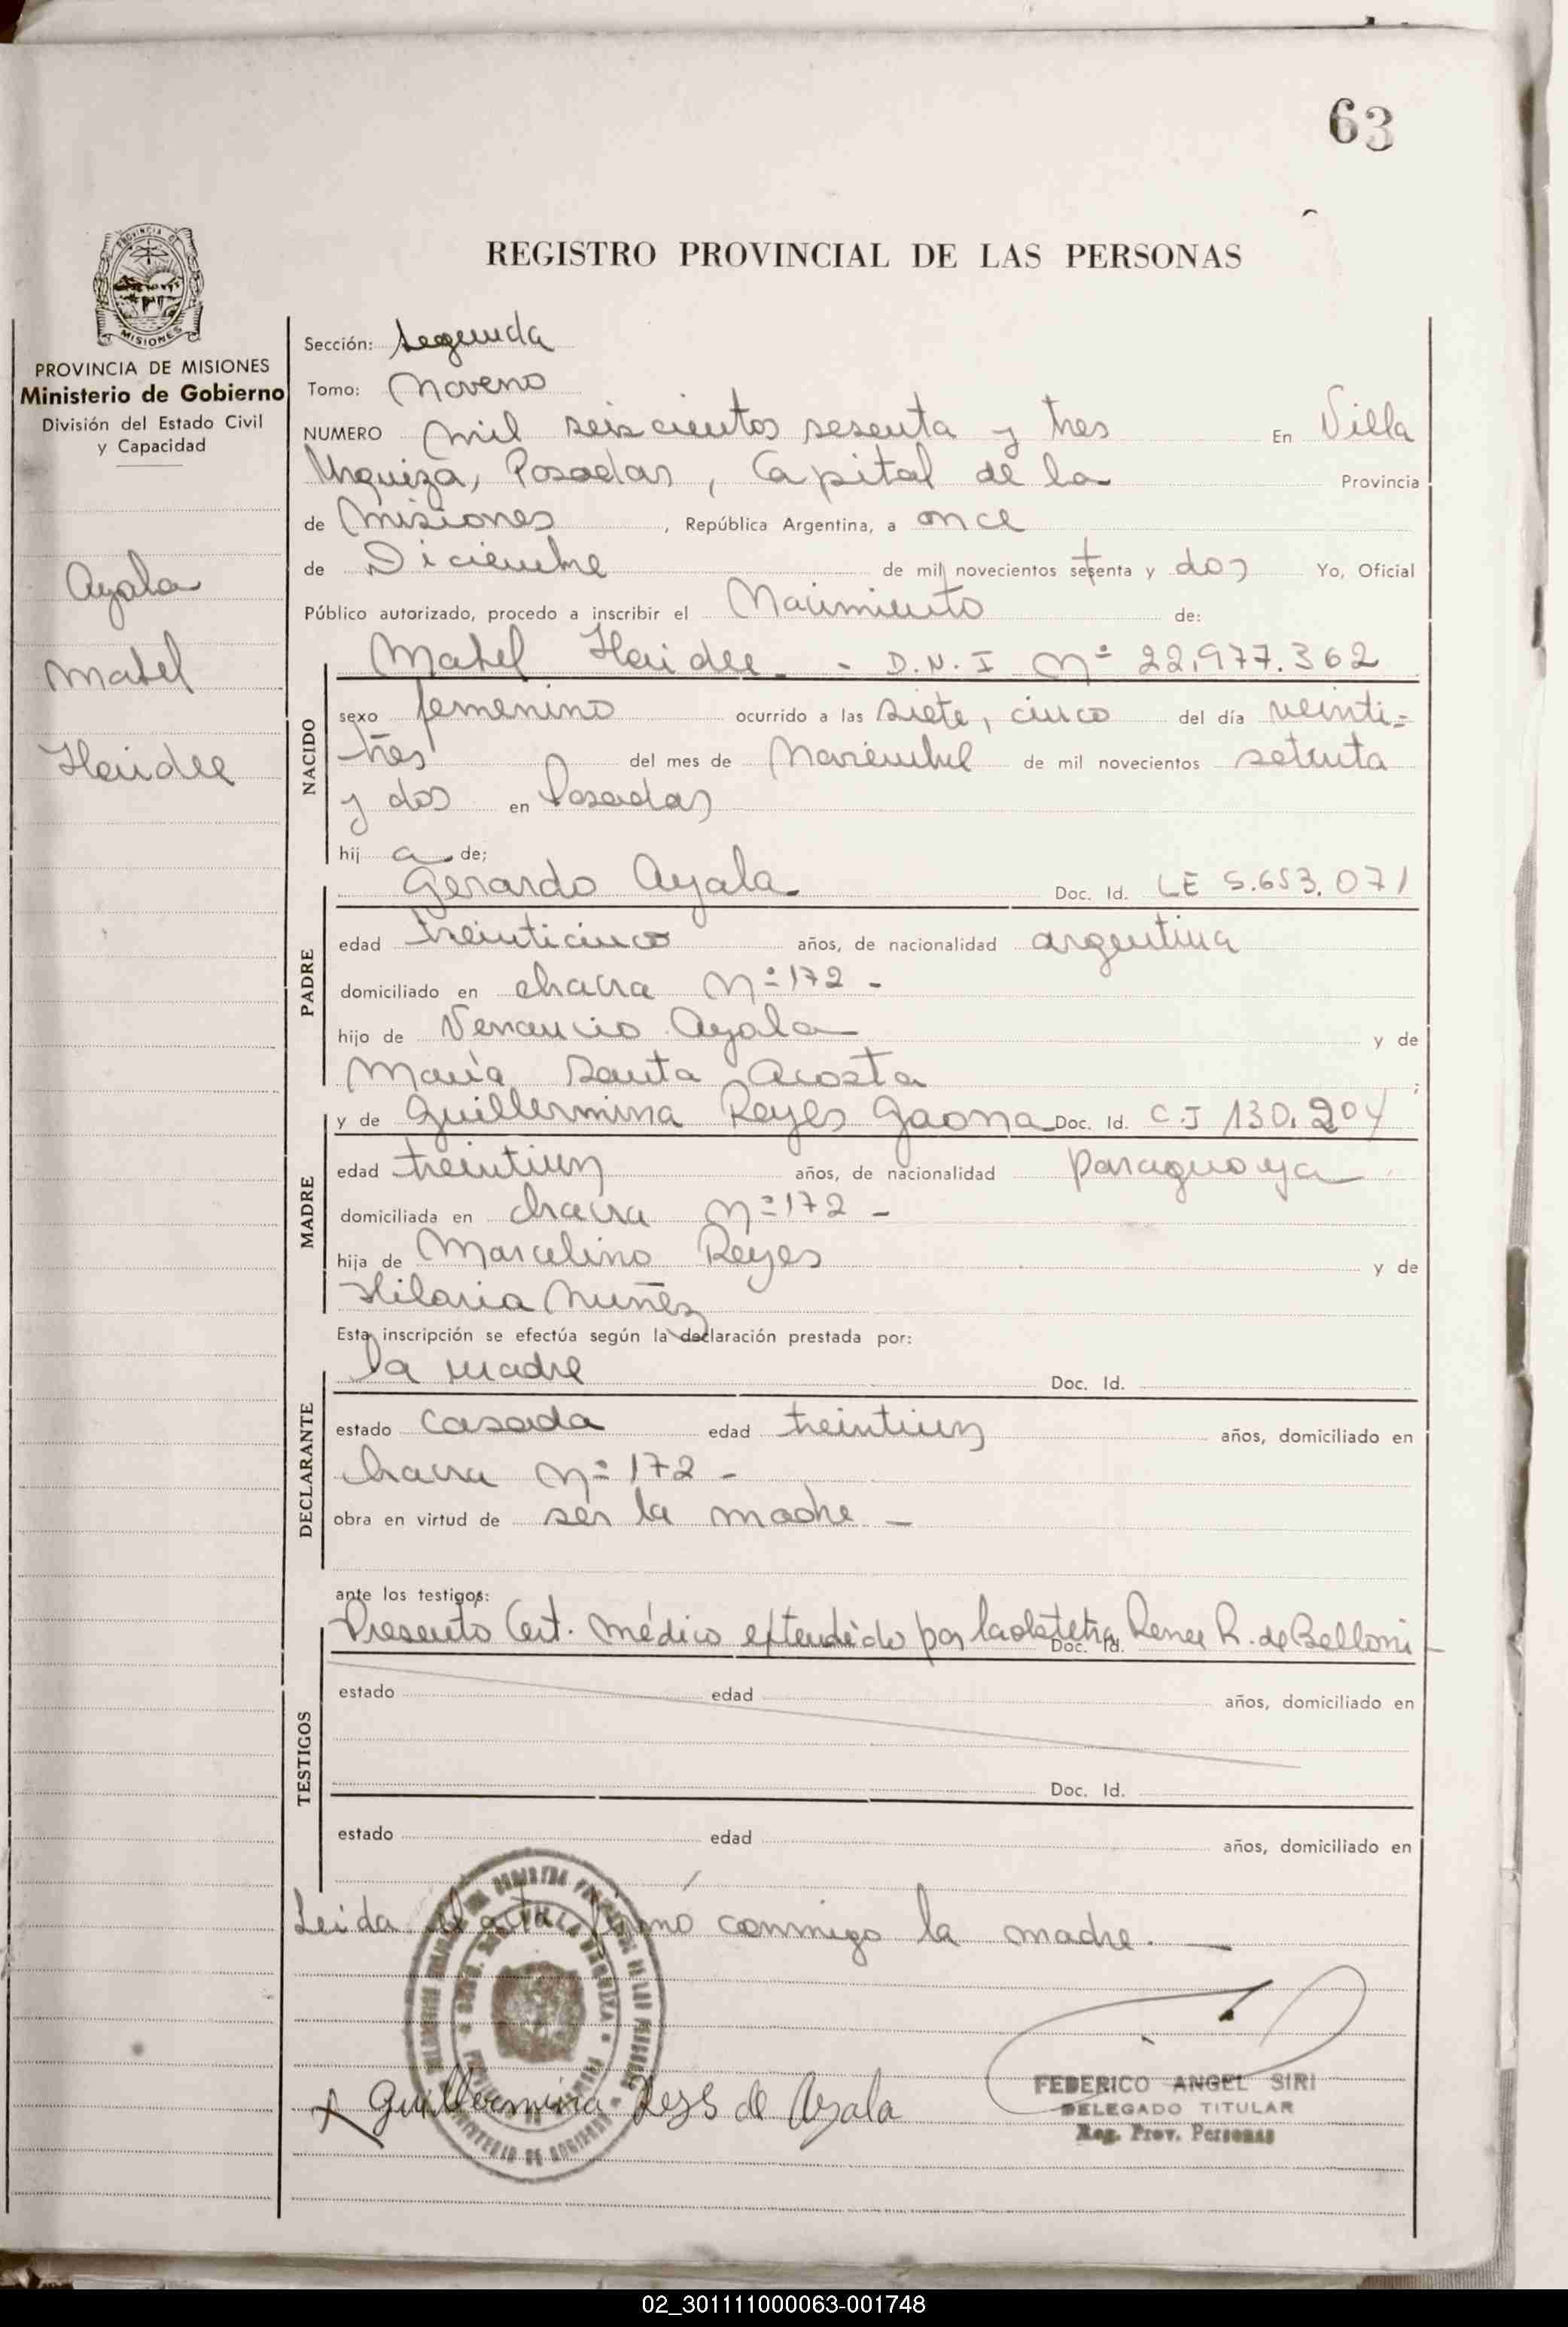 63
REGISTRO PROVINCIAL DE LAS PERSONAS
PROVINCIA DE
MISIONES
PROVINCIA DE MISIONES
Ministerio de Gobierno
División del Estado Civil
y Capacidad
Ayala
Mabel
Haidee
Sección: Segunda
Tomo: Noveno
NUMERO mil seiscientos sesenta y tres En Villa
Urquiza, Posadas, Capital de la Provincia
de Misiones, República Argentina, a once
de Diciembre de mil novecientos setenta y dos Yo, Oficial
Público autorizado, procedo a inscribir el Nacimiento de:
NACIDO
Mabel Haidee - D.N.I Nº 22.977.362
sexo femenino ocurrido a las siete, cinco del día veinti=
trés del mes de Noviembre de mil novecientos setenta
y dos en Posadas
hij a de;
PADRE
Gerardo Ayala Doc. Id. LE 5.653.071
edad treinticinco años, de nacionalidad argentina
domiciliado en chacra Nº 172 -
hijo de Venancio Ayala y de
María Santa Acosta ;
MADRE
y de Guillermina Reyes Gaona Doc. Id. C.I 130.204
edad treintiun años, de nacionalidad paraguaya
domiciliada en chacra Nº 172 -
hija de Marcelino Reyes y de
Hilaria Nuñez
Esta inscripción se efectúa según la declaración prestada por:
DECLARANTE
la madre Doc. Id.
estado casada edad treintiun años, domiciliado en
chacra Nº 172 -
obra en virtud de ser la madre -
ante los testigos:
TESTIGOS
Presento Cert. médico extendido por la obstetra Renee R. de Belloni - Doc. Id.
estado edad años, domiciliado en
Doc. Id.
estado edad años, domiciliado en
Leida el acta firmó conmigo la madre. -
VILLA URQUIZA
Guillermina Reys de Ayala
FEDERICO ANGEL SIRI
DELEGADO TITULAR
Reg. Prov. Personas
02_301111000063-001748